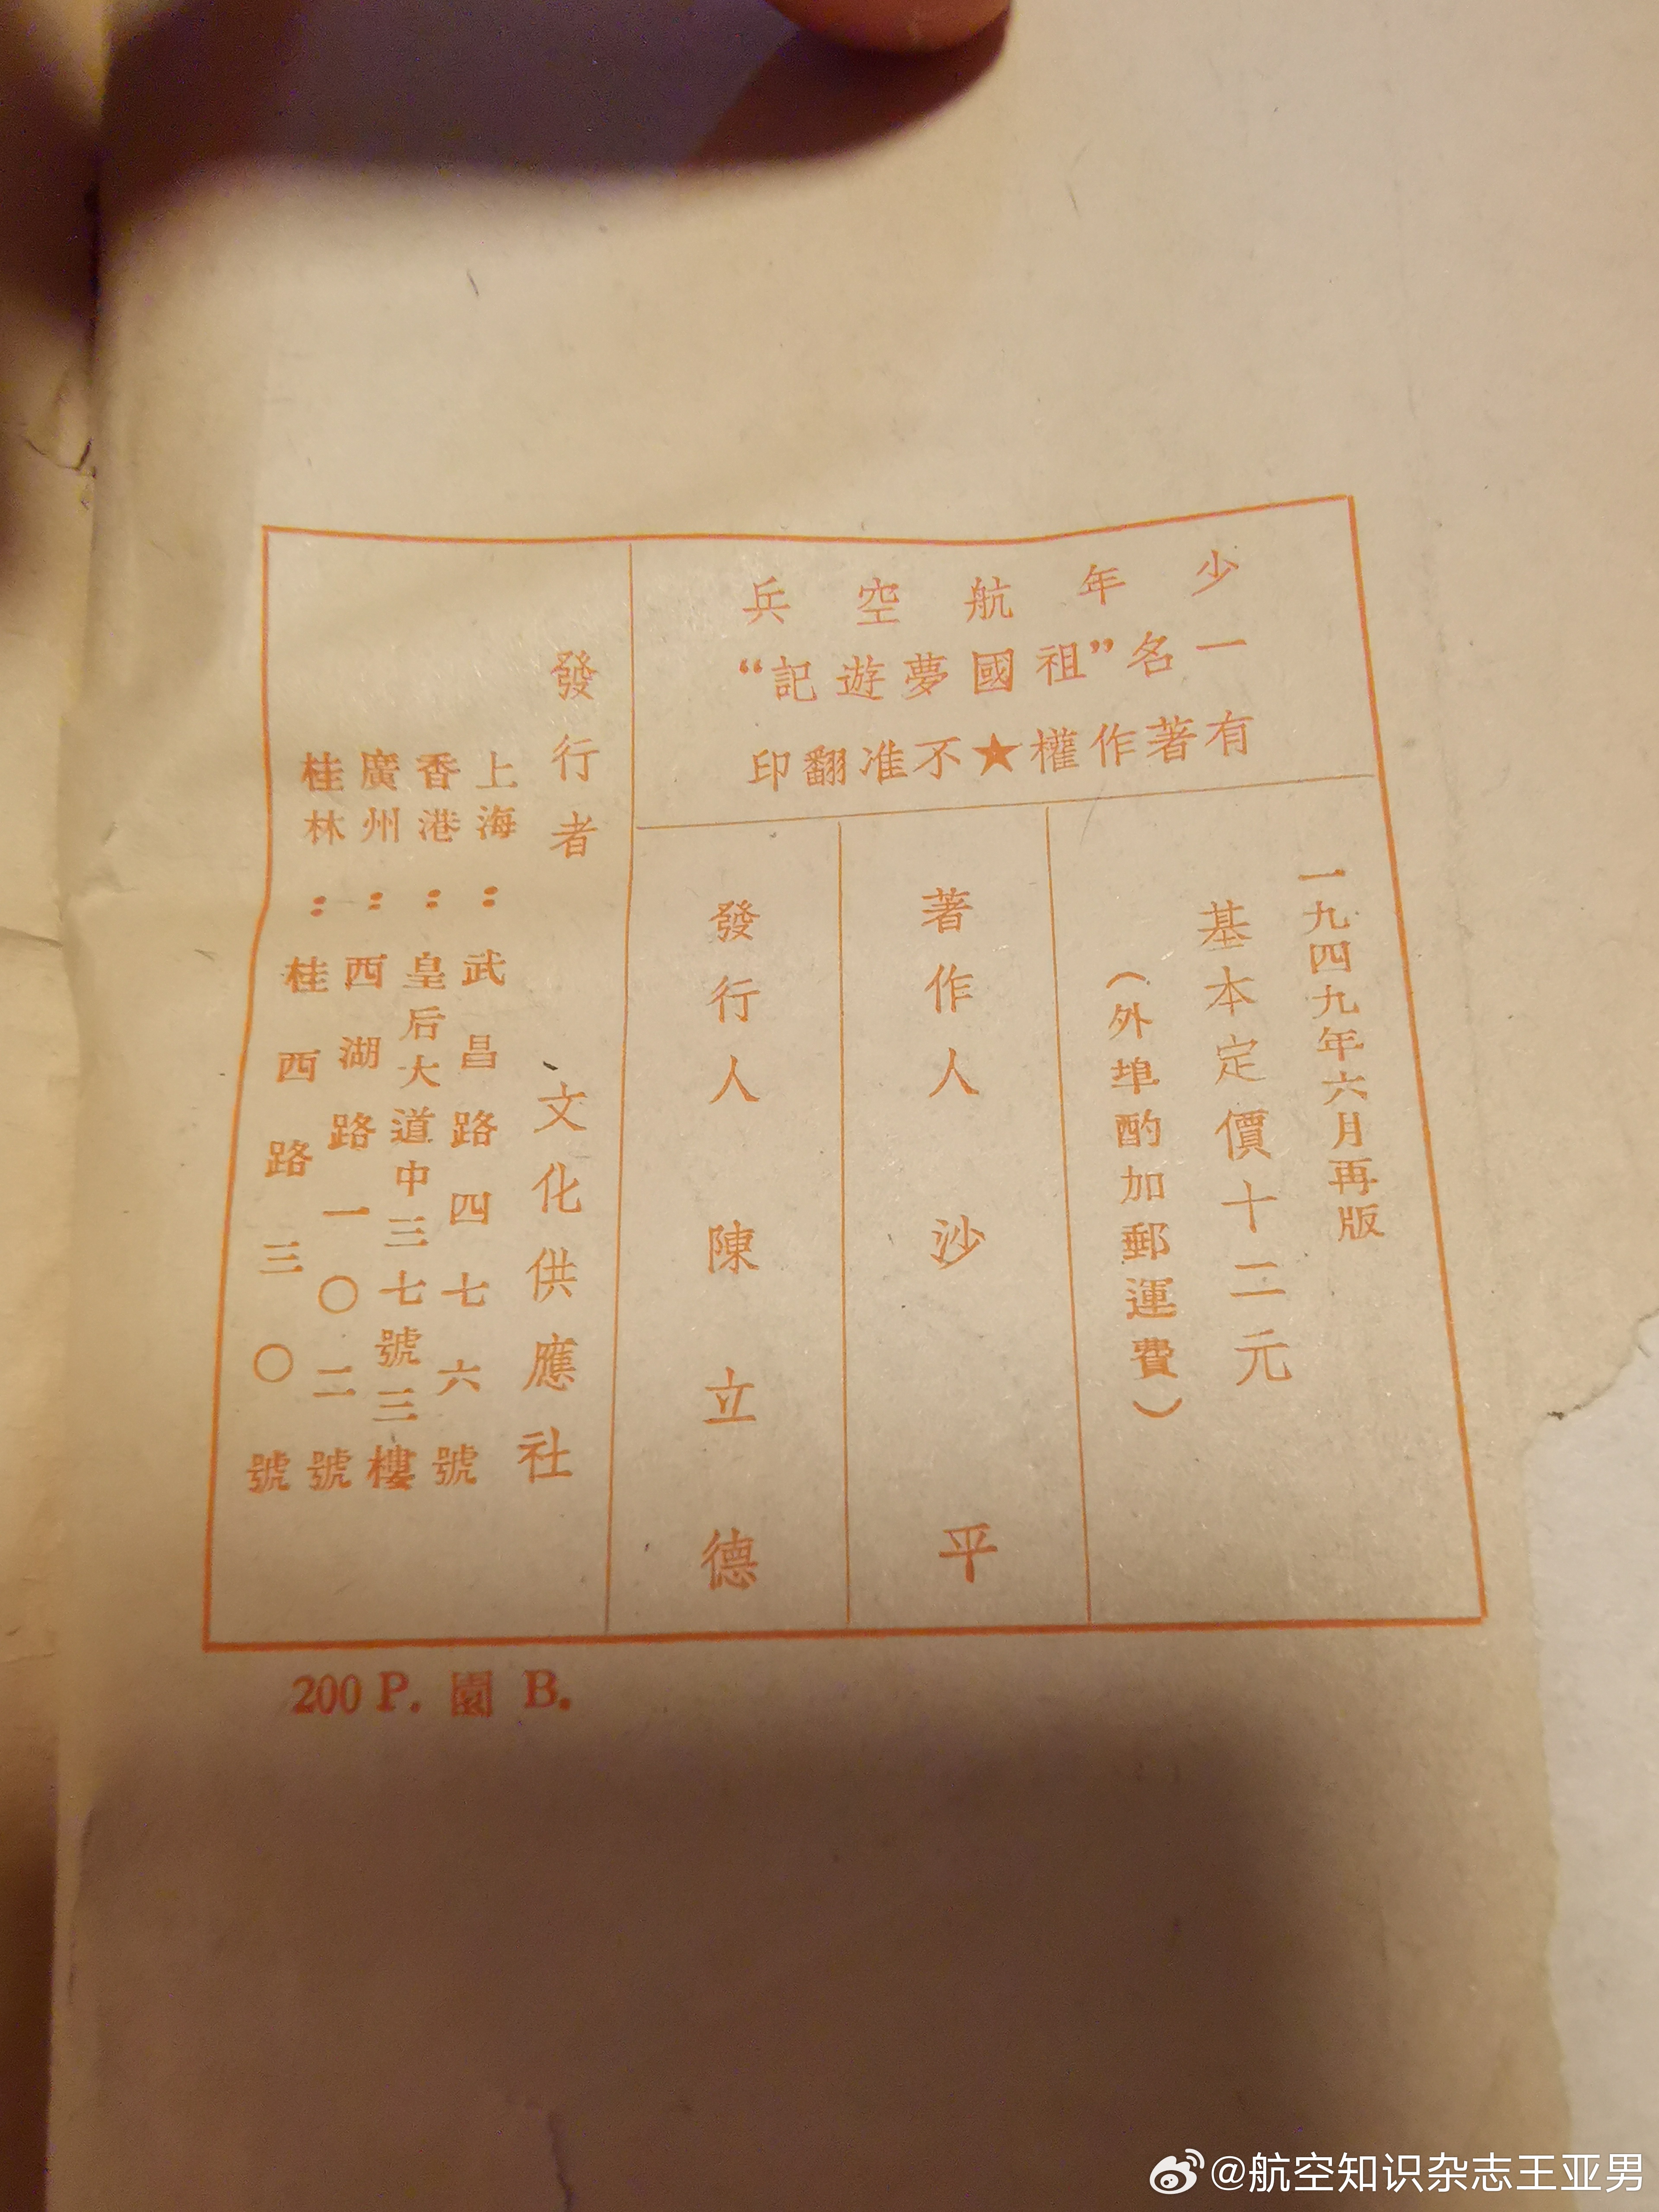 少年航空兵
一名"祖國夢遊記"
有著作權★不准翻印
一九四九年六月再版
基本定價十二元
（外埠酌加郵運費）
著作人 沙平
發行人 陳立德
發行者 文化供應社
上海：武昌路四七六號
香港：皇后大道中三七號三樓
廣州：西湖路一〇二號
桂林：桂西路三〇號
200 P. 園 B.
@航空知识杂志王亚男